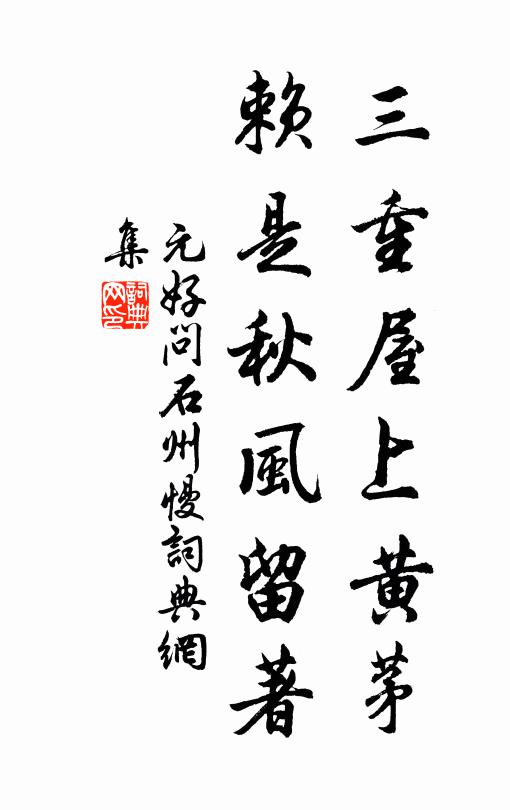 三重屋上黃茅
賴是秋風留著
元好問石州慢詞典網
集
詞典網印